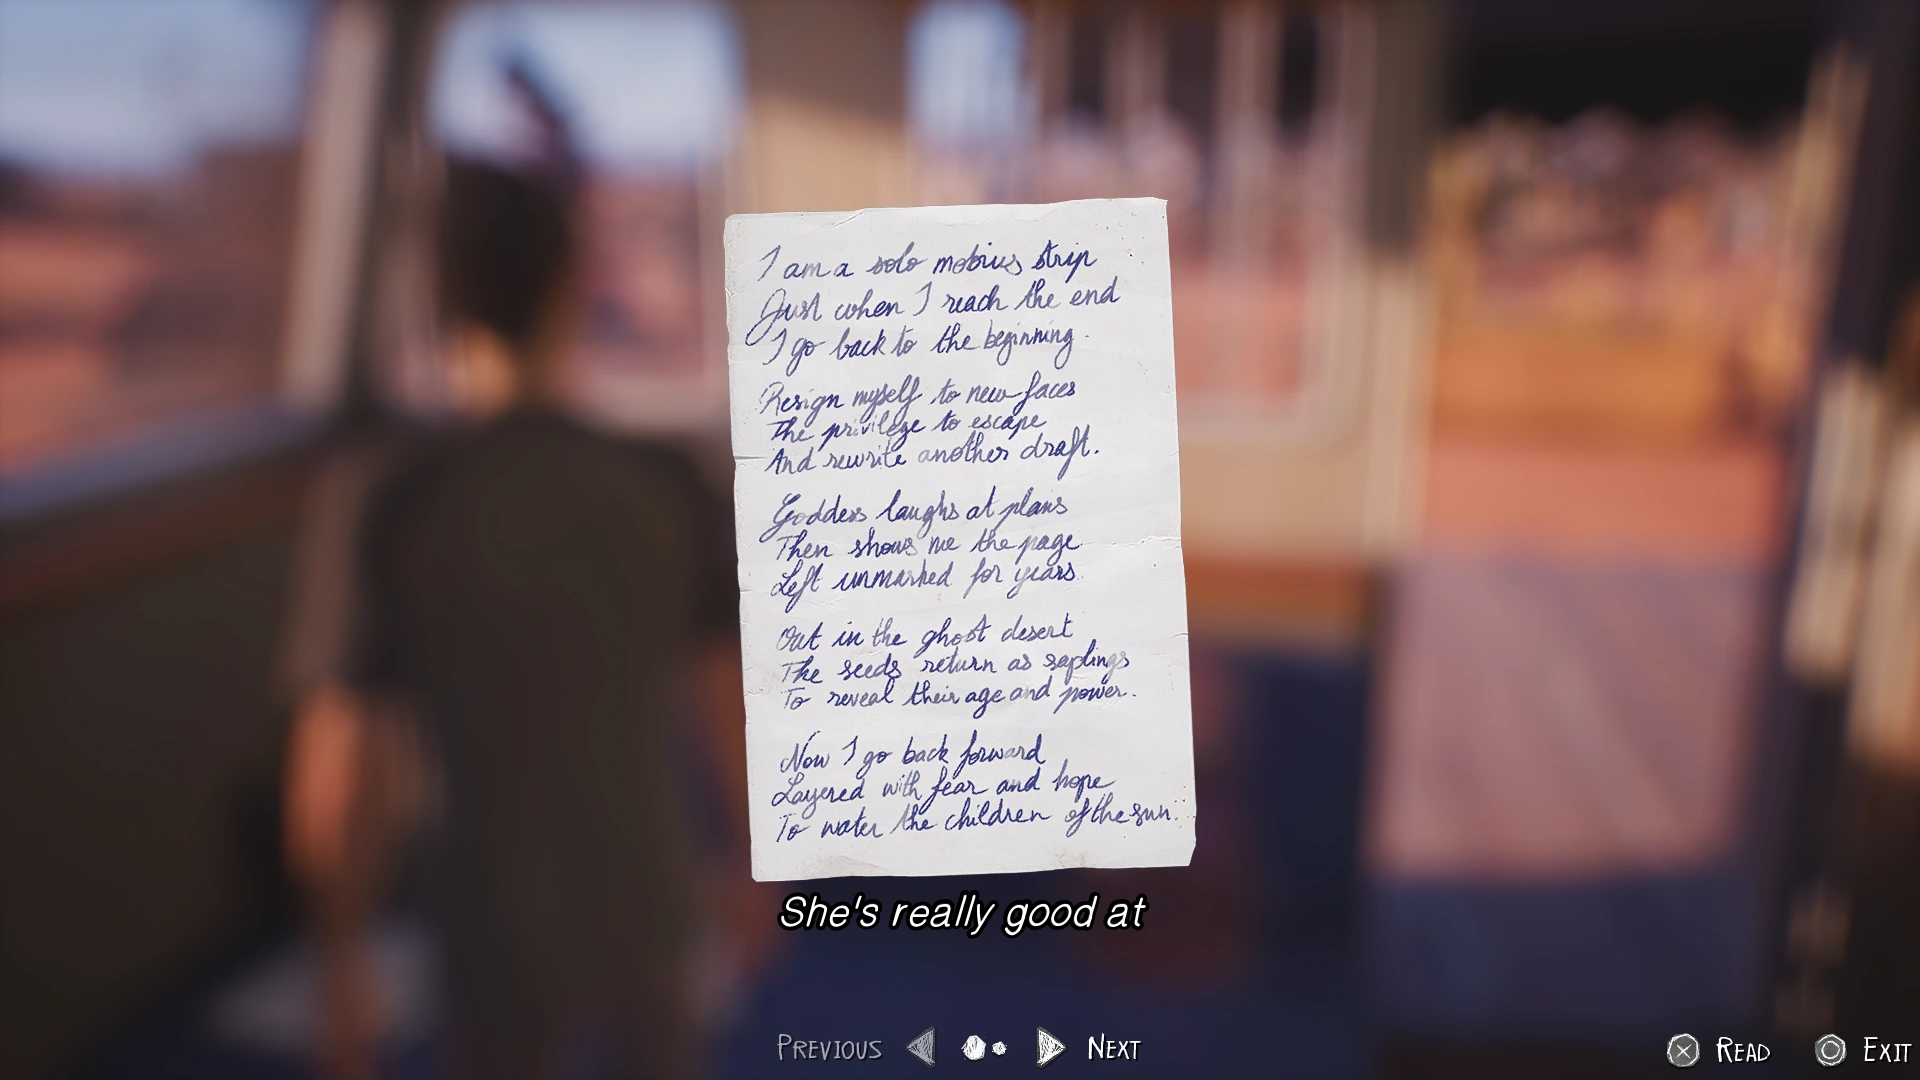 I am a solo mobius strip
Just when I reach the end
I go back to the beginning.
Resign myself to new faces
The privilege to escape
And rewrite another draft.
Goddess laughs at plans
Then shows me the page
Left unmarked for years.
Out in the ghost desert
The seeds return as saplings
To reveal their age and power.
Now I go back forward
Layered with fear and hope
To water the children of the sun.
She's really good at
PREVIOUS NEXT
READ EXIT